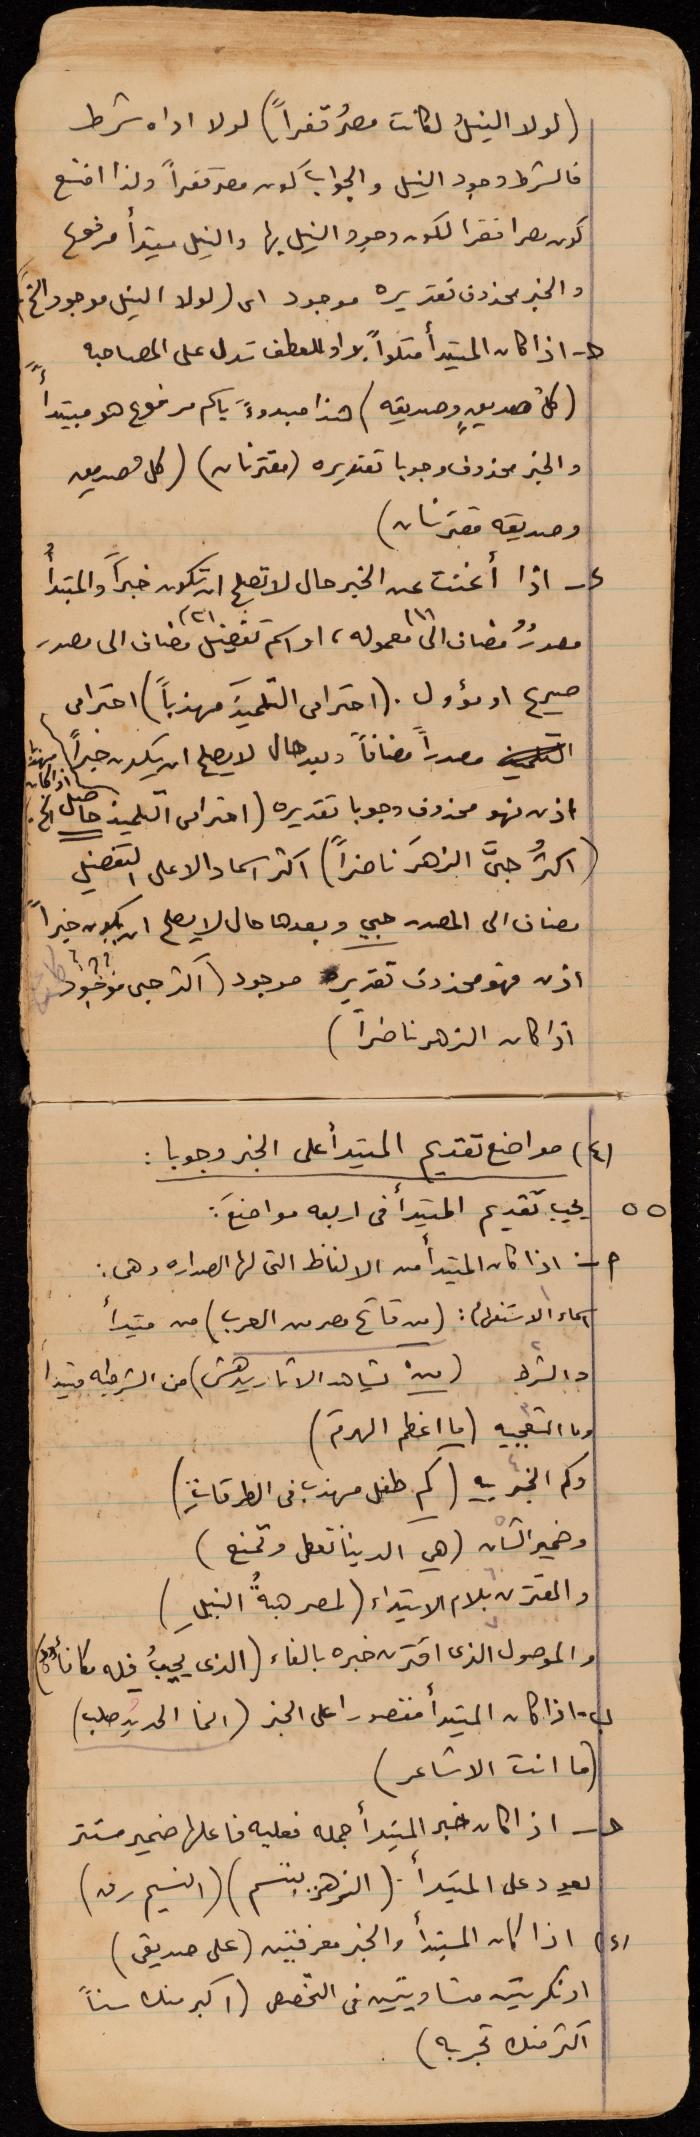 (لولا النيلُ لكانت مصرُ قفراً) لولا اداه شرط
فالشرط وجود النيل والجواب كون مصر قفراً ولذا امتنع
كون مصر قفرا لكون وجود النيل بها والنيل مبتدأ مرفوع
والخبر محذوف تقديره موجود اى (لولا النيل موجود الخ)
حـ- اذا كان المبتدأ متلواً بواو للعطف تدل على المصاحبه
(كلُ صديقٍ وصديقه) هذا مبدوءَ باسم مرفوع هو مبتدأً
والخبر محذوف وجوبا تقديره (مقترنان) (كل صديق
وصديقه مقترنان)
د- اذا أغنت عن الخبر حال لا تصلح ان تكون خبراً والمبتدأُ
مصدرُ مضاف الى (١) معموله، او اسم تفضيل (٢) مضاف الى مصدر
صريح او مؤول. (احترامى التلميذَ مهذباً) احترامى
مصدراً مضافاً وبعد حال لا يصلح ان يكون خبراً
اذن فهو محذوف وجوبا تقديره (احترامى التلميذ حاصل اذا كان مهذبا الخ)
(اكثرُ حبىَّ الزهرَ ناضراً) اكثر اسما دالا على التفضيل
مضاف الى المصدر حبي وبعدها حال لا يصلح ان يكون خبراً
اذن فهو محذوف تقديره موجود (اكثر حبى موجود
اذا كان الزهر ناضراً)
(٤) مواضع تقديم المبتدأ على الخبر وجوبا:
يجب تقديم المبتدأ فى اربعه مواضعَ:
م- اذا كان المبتدأ من الالفاظ التى لها الصداره وهى:
اسماء الاستفهام: (من فاتح مصر من العرب) من مبتدأ
والشرط (من يشاهد الاثار يدهش) من الشرطيه مبتدا
وما التعجبيه (ما اعظم الهرم)
وكم الخبريه (كم طفل مهذب فى الطرقات)
وضمير الشان (هي الدينا تعطى وتمنع)
والمقترن بلام الابتداء (لمصر هبةُ النيلِ)
والموصول الذى اقترن خبره بالفاء (الذى يجيبُ فله مكافأه)
ب- اذا كان المبتدأ مقصورا على الخبر (انما الحديُد صلب)
(ما انت الا شاعر)
حـ- اذا كان خبر المبتدأ جمله فعليه فاعلها ضمير مستتر
يعود على المبتدأ. (الزهر يبتسم) (النسيم رق)
(٤) اذا كان المبتدأ والخبر معرفتين (على صديقى)
او نكرتين متساويتين فى التخصص (اكبر منك سناً
اكثر منك تجربه).